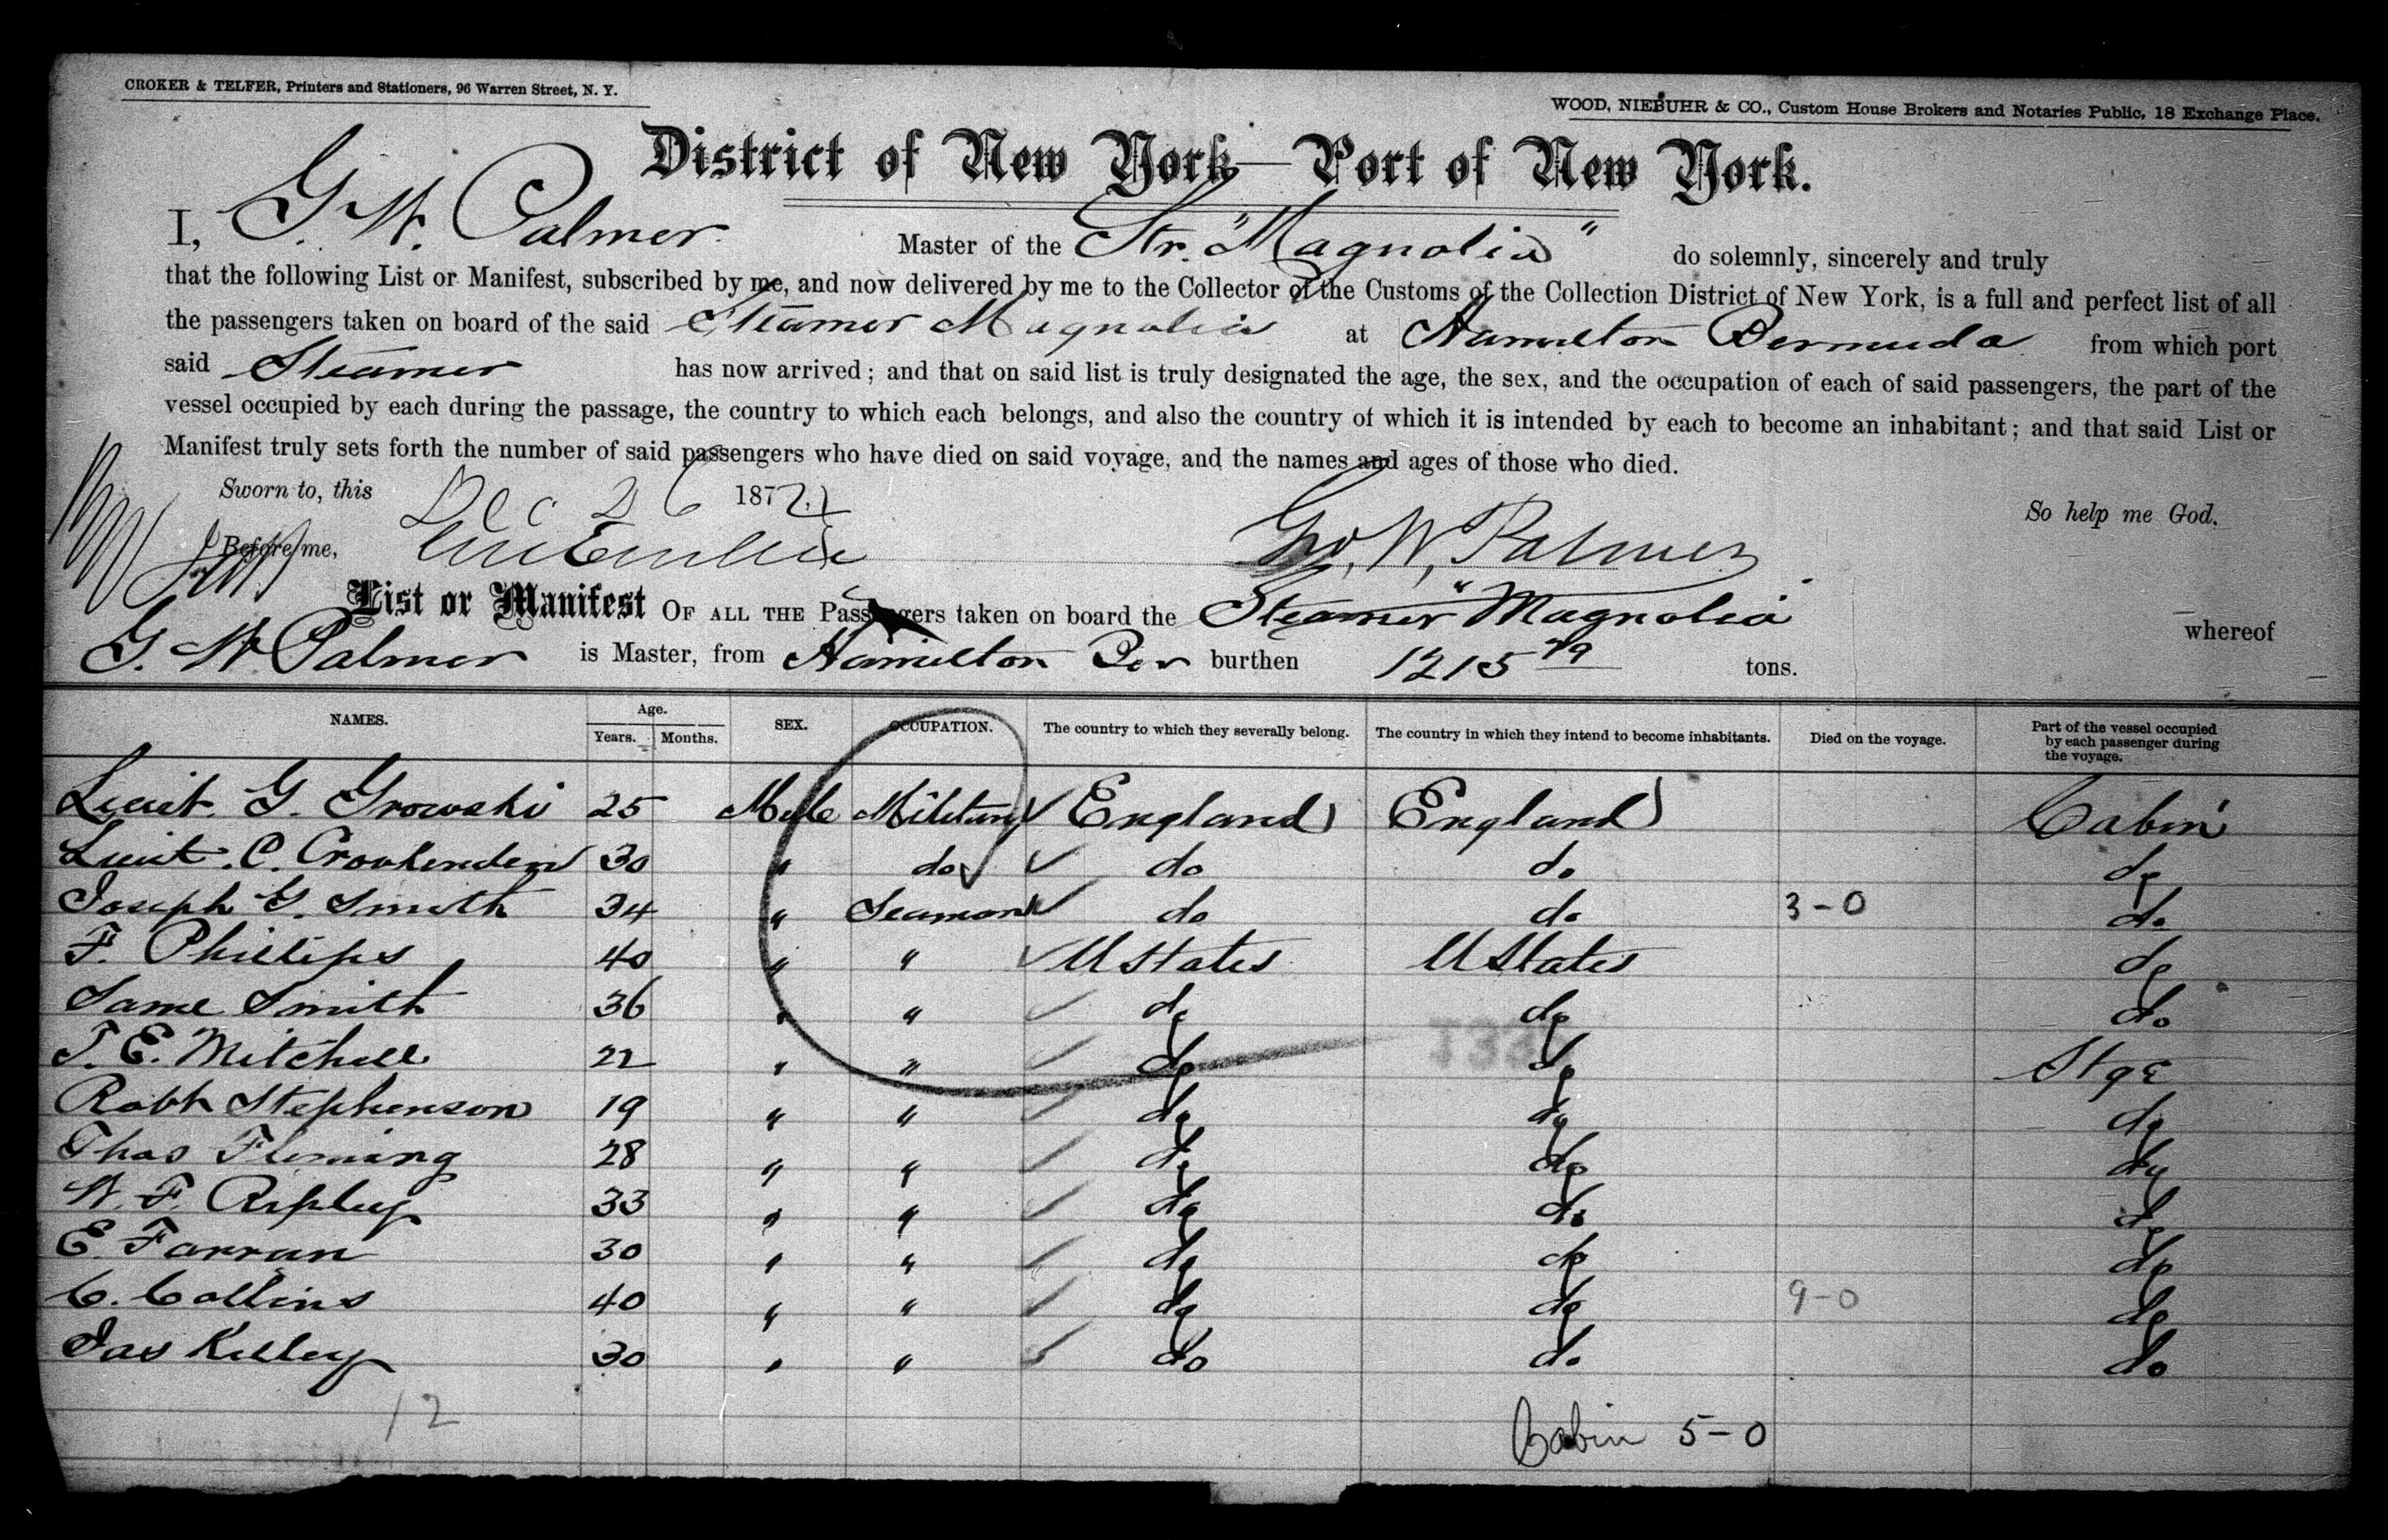 CROKER & TELFER, Printers and Stationers, 96 Warren Street, N. Y.
WOOD, NIEBUHR & CO., Custom House Brokers and Notaries Public, 18 Exchange Place.
District of New York—Port of New York.
I, G. W. Palmer Master of the Str. "Magnolia" do solemnly, sincerely and truly
that the following List or Manifest, subscribed by me, and now delivered by me to the Collector of the Customs of the Collection District of New York, is a full and perfect list of all
the passengers taken on board of the said Steamer Magnolia at Hamilton Bermuda from which port
said Steamer has now arrived; and that on said list is truly designated the age, the sex, and the occupation of each of said passengers, the part of the
vessel occupied by each during the passage, the country to which each belongs, and also the country of which it is intended by each to become an inhabitant; and that said List or
Manifest truly sets forth the number of said passengers who have died on said voyage, and the names and ages of those who died.
Sworn to, this Dec 26 187 So help me God.
Before me, Geo. W. Palmer
List or Manifest OF ALL THE Passengers taken on board the Steamer "Magnolia" whereof
G. W. Palmer is Master, from Hamilton Ber burthen 1215 tons.
NAMES. Age. Years. Months. SEX. OCCUPATION. The country to which they severally belong. The country in which they intend to become inhabitants. Died on the voyage. Part of the vessel occupied by each passenger during the voyage.
Lieut. G. Growski 25 Male Military England England Cabin
Lieut. C. Crookenden 30 " do do do do
Joseph G. Smith 34 " Seaman do do 3-0 do
F. Phillips 40 " " U States U States do
Same Smith 36 " " do do do
T. E. Mitchell 22 " " do do Stge
Robt Stephenson 19 " " do do do
Thos Fleming 28 " " do do do
W. F. Ripley 33 " " do do do
E. Farran 30 " " do do do
C. Collins 40 " " do do 9-0 do
Jas Kelley 30 " " do do do
12
Cabin 5-0